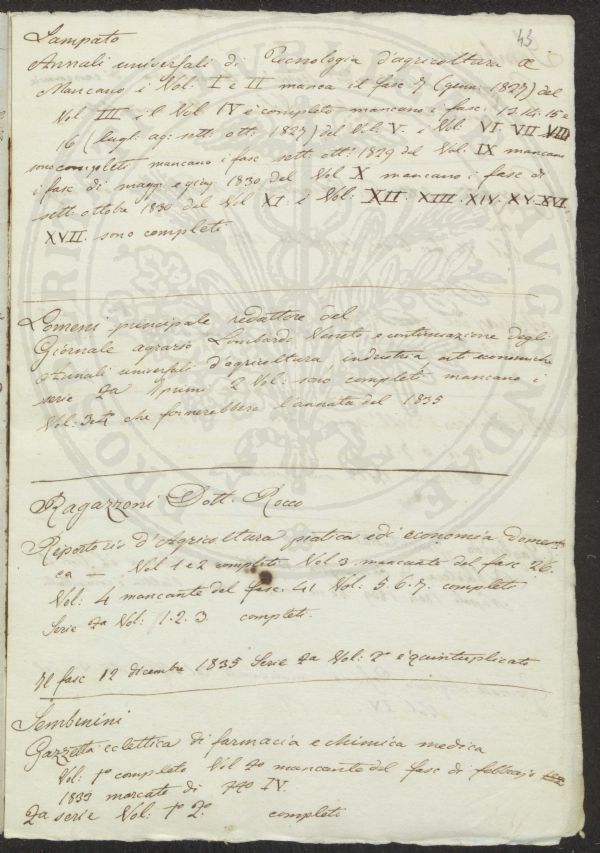 43
Lampato
Annali universali di Tecnologia d'agricoltura &
Mancano i Vol: I e II manca il fasc 7 (giun: 1827) del
Vol III: il Vol IV è completo mancano i fasc. 13. 14. 15 e
16 (lugl. ag: sett: ott: 1827) del Vol. V. i Vol VI. VII. VIII
sono completi mancano i fasc sett: ott: 1829 del Vol: IX mancano
i fasc di magg: e giug 1830 del Vol X mancano i fasc di
sett: ottobre 1830 del Vol XI: i Vol: XII. XIII. XIV. XV. XVI.
XVII. sono completi
principale redattore del
Giornale agrario Lombardo Veneto e continuazione degli
Annali universali d'agricoltura, industria, arti economiche
serie 2a I primi 2 Vol: sono completi mancano i
Vol: 3 e 4 che formerebbero l'annata del 1835
Ragazzoni Dott. Rocco
Repertorio d'Agricoltura pratica e di economia domesti
ca — Vol 1 e 2 completi Vol 3 mancante del fasc 26.
Vol: 4 mancante del fasc: 41 Vol: 5. 6. 7. completi
Serie 2a Vol: 1. 2. 3. completi.
Il fasc 12 dicembre 1835 Serie 2a Vol: 2° è quintuplicato
Sembenini
Gazzetta eclettica di farmacia e chimica medica
Vol: 1° completo Vol 2° mancante del fasc di febbrajo
1833 marcato di N° IV.
2a serie Vol: 1° 2° completi